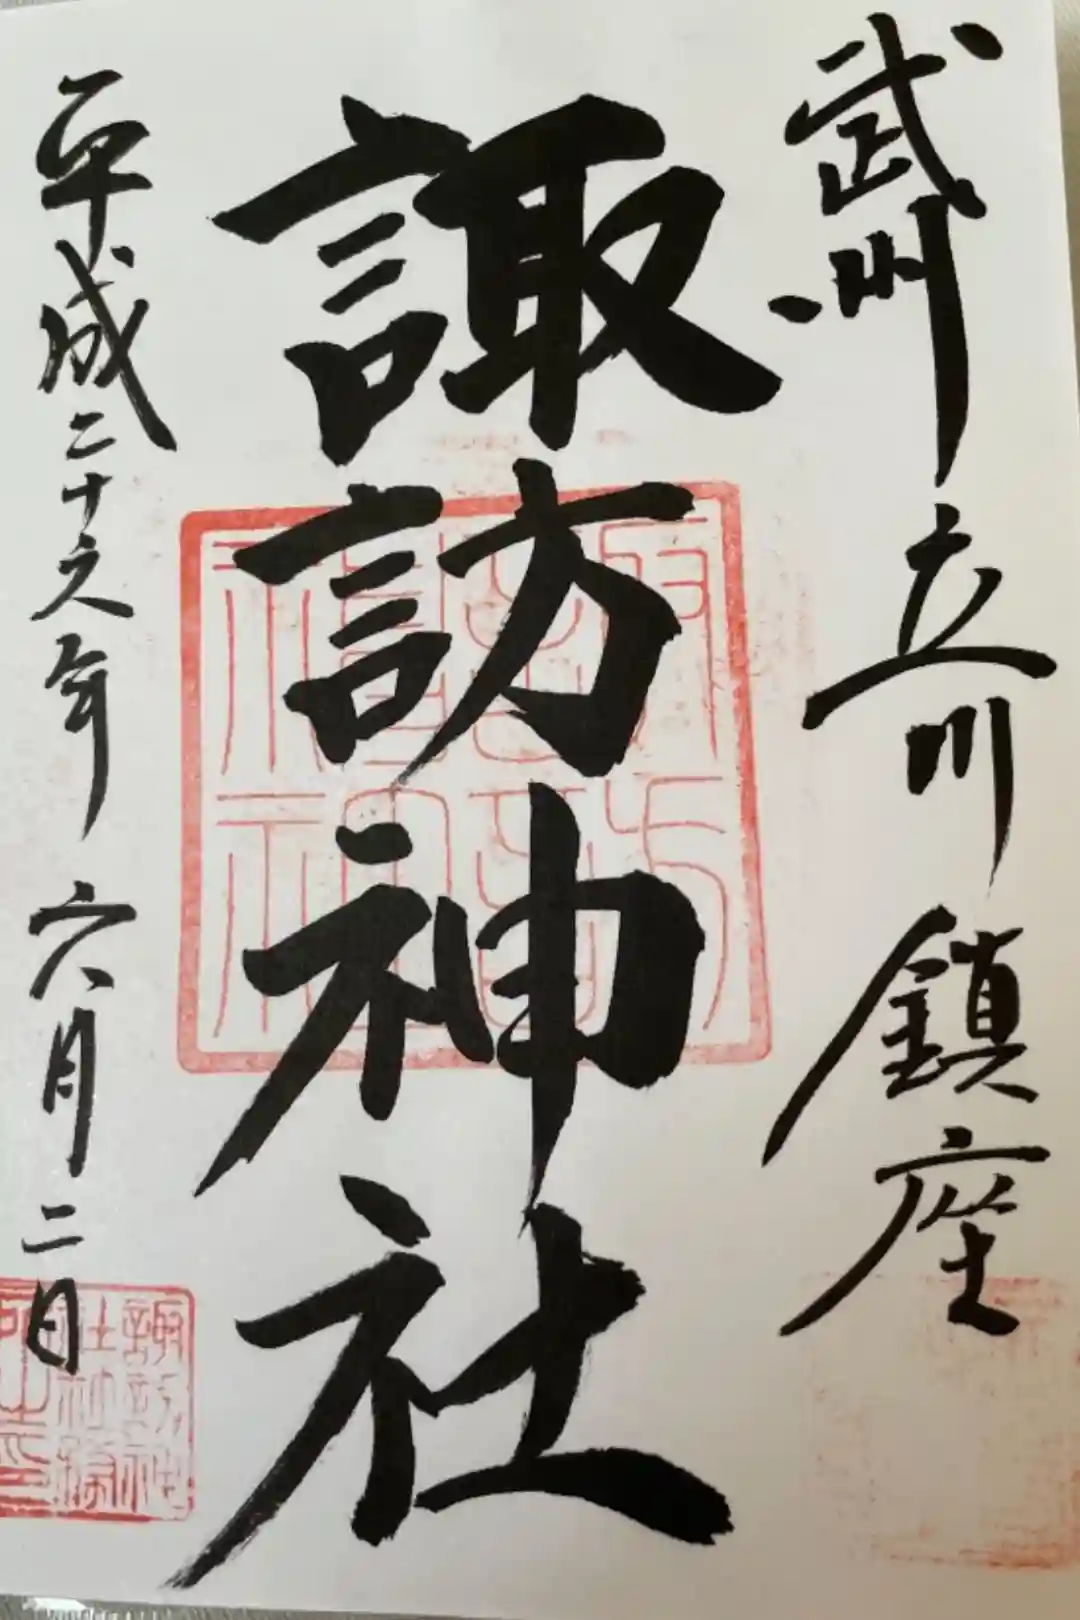 武州立川鎮座
諏訪神社
平成二十六年六月二日
諏訪神
社社務
所之印